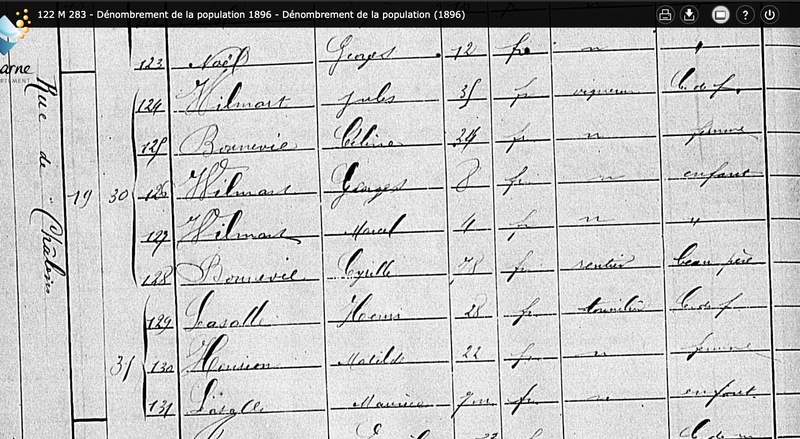 122 M 283 - Dénombrement de la population 1896 - Dénombrement de la population (1896)
arne
Rue de Châlons
123 Noël Georges 12 fr n "
124 Wilmart Jules 35 fr vigneron C. de f.
125 Bonnevie Céline 29 fr n femme
19 30 126 Wilmart Georges 8 fr n enfant
127 Wilmart Marcel 4 fr n "
128 Bonnevie Cyrille 78 fr rentier beau père
129 Lasalle Henri 28 fr tonnelier C. de f
31 130 Housion Matilde 22 fr n femme
131 Lasalle Maurice 7m fr n enfant